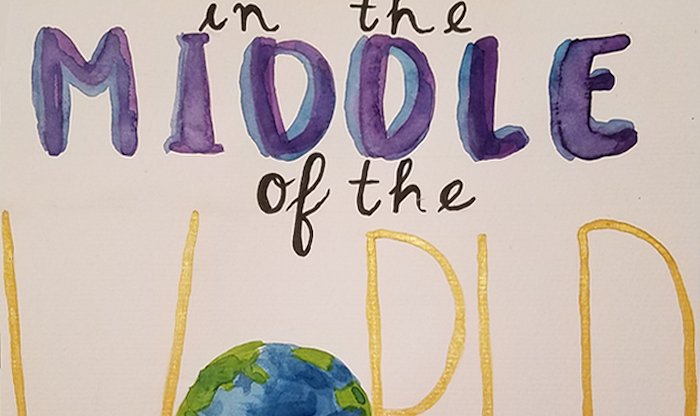 in the
MIDDLE
of the
WORLD